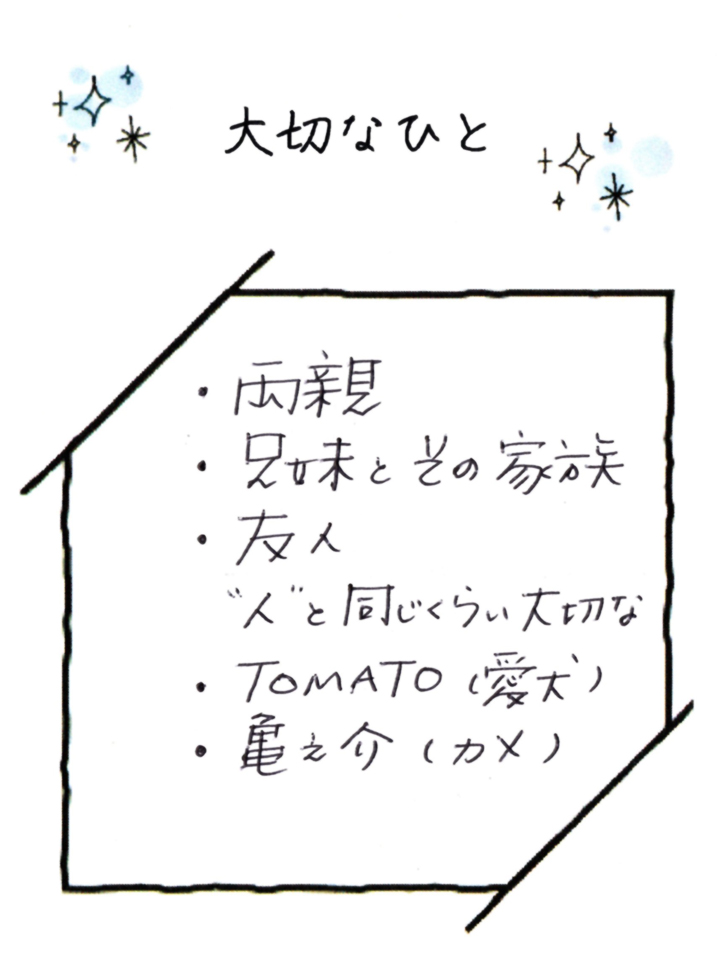 大切なひと
・両親
・兄妹とその家族
・友人
"人"と同じくらい大切な
・TOMATO（愛犬）
・亀之介（カメ）